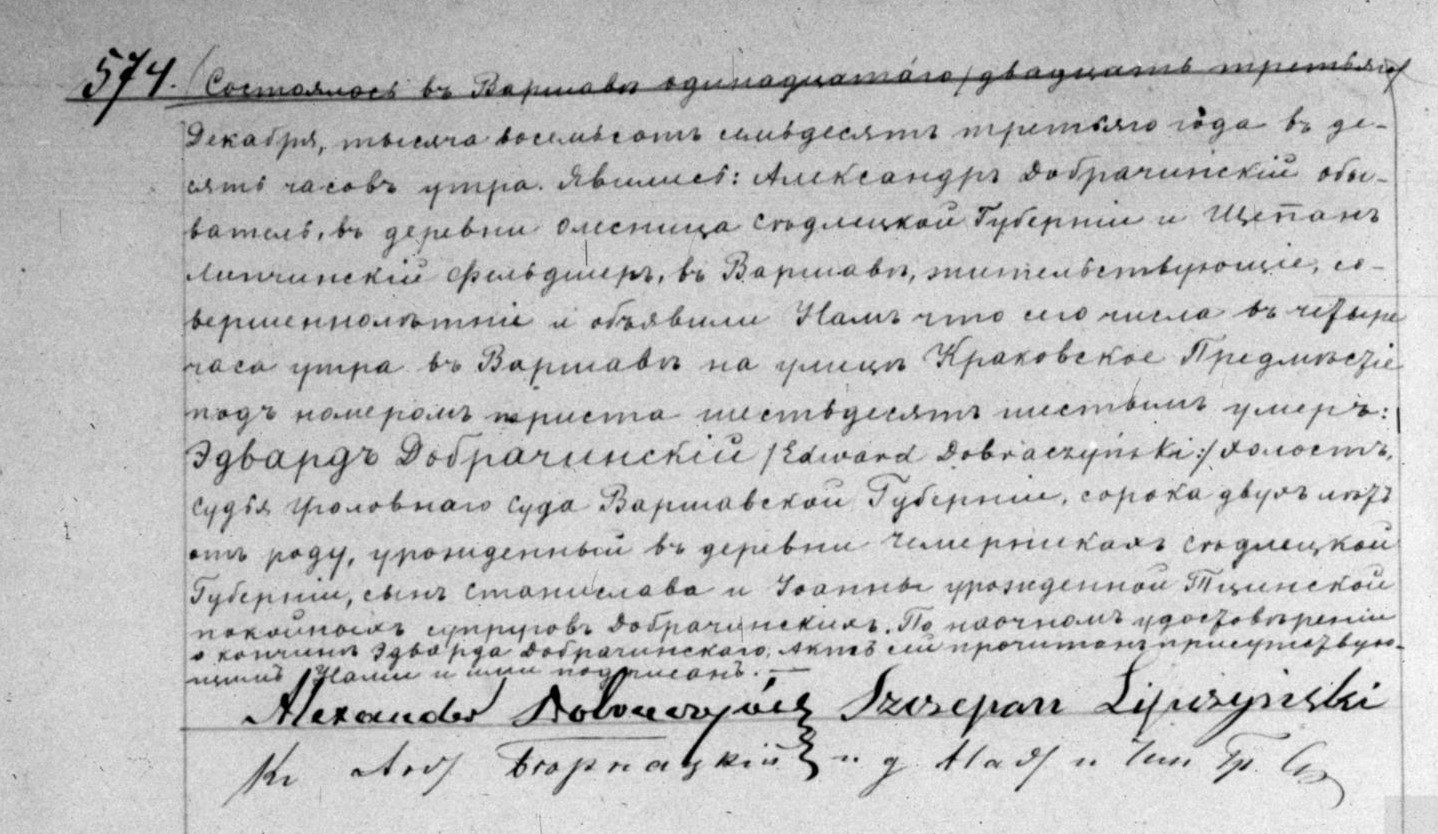 574. /Состоялось въ Варшавѣ одинадцатаго/двадцать третьяго/
Декабря, тысяча восемьсотъ семьдесятъ третьяго года въ де-
сять часовъ утра. Явились: Александръ Добрачинскій обы-
ватель, въ деревни Олесница Сѣдлецкой Губерніи и Щепанъ
Липчинскій Фельдшеръ, въ Варшавѣ, жительствующіе, со-
вершеннолѣтніе и объявили Намъ что сего числа въ четыре
часа утра въ Варшавѣ на улицѣ Краковское Предмѣстіе
подъ номеромъ триста шестьдесятъ шестымъ умеръ:
Эдвардъ Добрачинскій /Edward Dobraczyński:/ холостъ,
Судья Уголовнаго Суда Варшавской Губерніи, сорока двухъ лѣтъ
отъ роду, урожденный въ деревни Чемерникахъ Сѣдлецкой
Губерніи, сынъ Станислава и Іоанны урожденной Тщинской
покойныхъ супруговъ Добрачинскихъ. По наочномъ удостовѣреніи
о кончинѣ Эдварда Добрачинскаго, Актъ сей прочитанъ присутствую-
щимъ Нами и ими подписанъ.
Alexander Szczepan Lipczyński
Кс и д